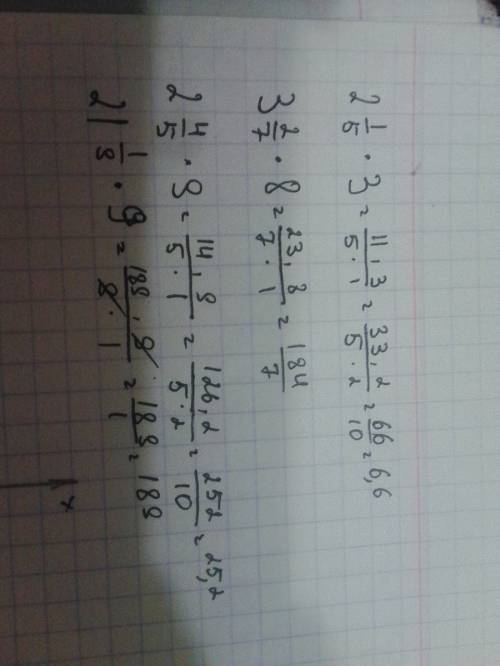 2 1/5 · 3 = 11·3/5·1 = 33·2/5·2 = 66/10 = 6,6
3 2/7 · 8 = 23·8/7·1 = 184/7
2 4/5 · 9 = 14·9/5·1 = 126·2/5·2 = 252/10 = 25,2
21 1/9 · 9 = 189·9/9·1 = 189/1 = 189
x